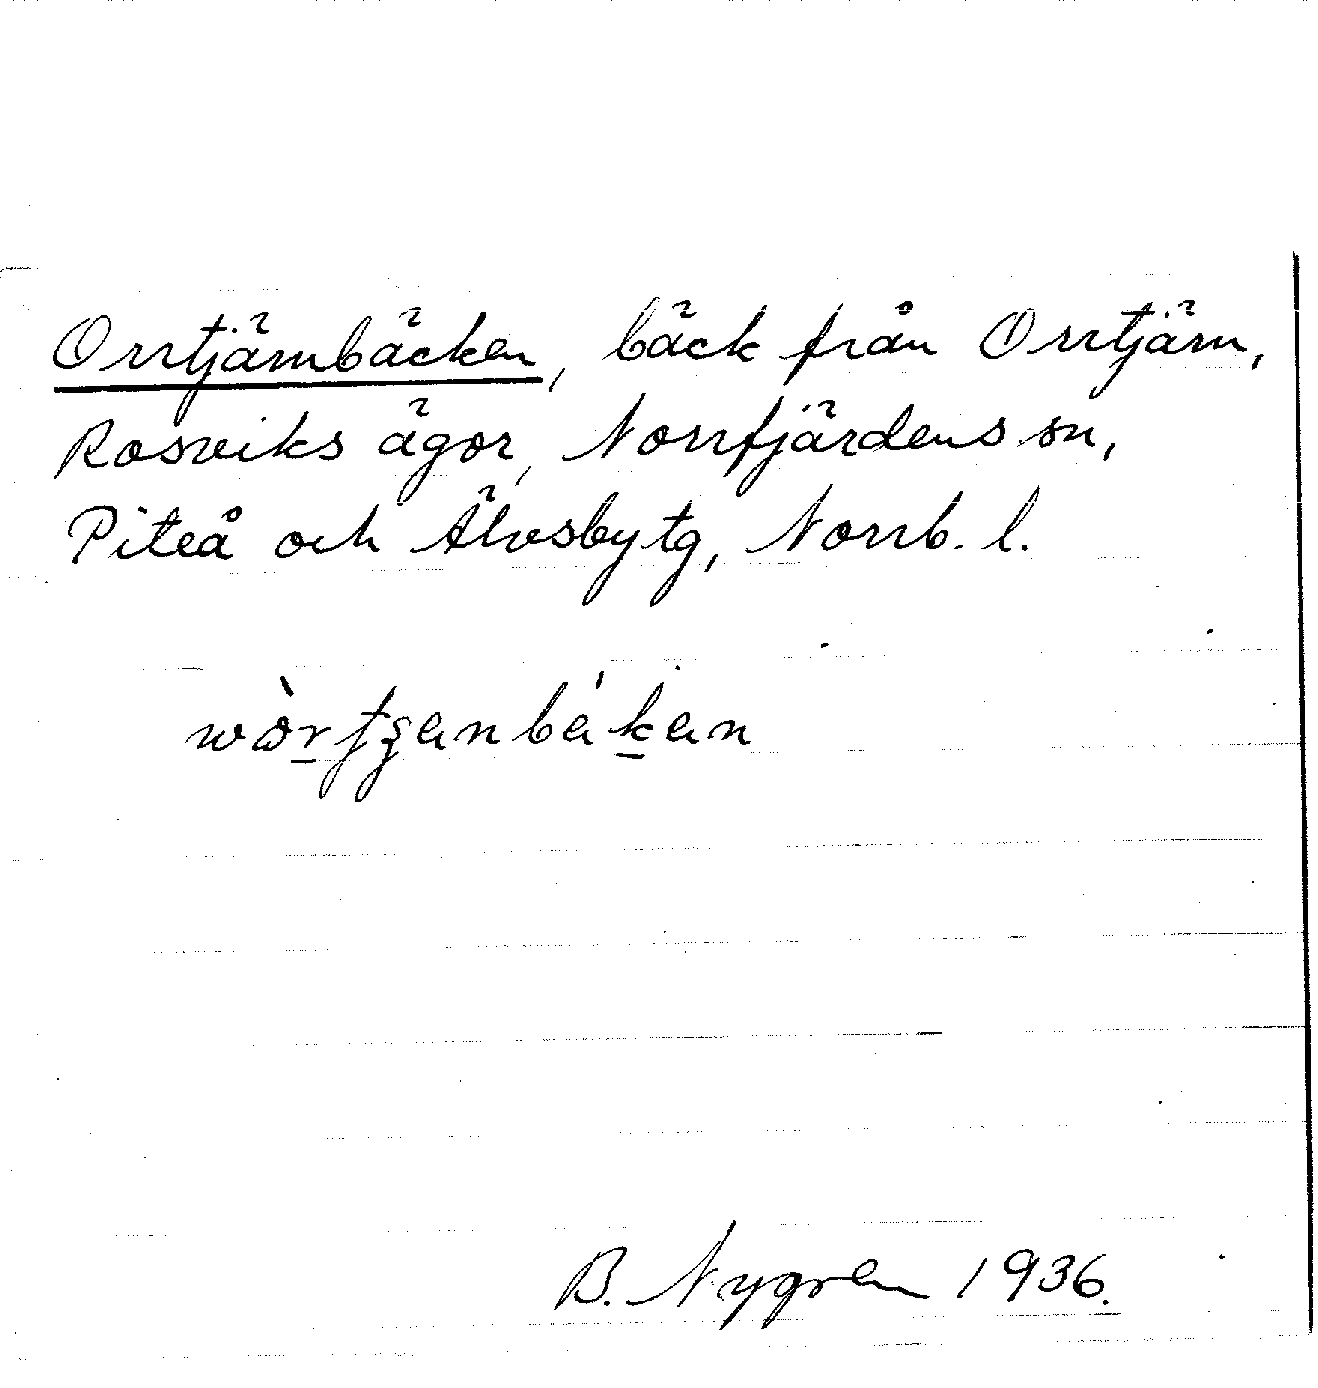 Orrtjärnbäcken, bäck från Orrtjärn,
Rosviks ägor, Norrfjärdens sn,
Piteå och Älvsby tg, Norrb. l.
B. Nygren 1936.